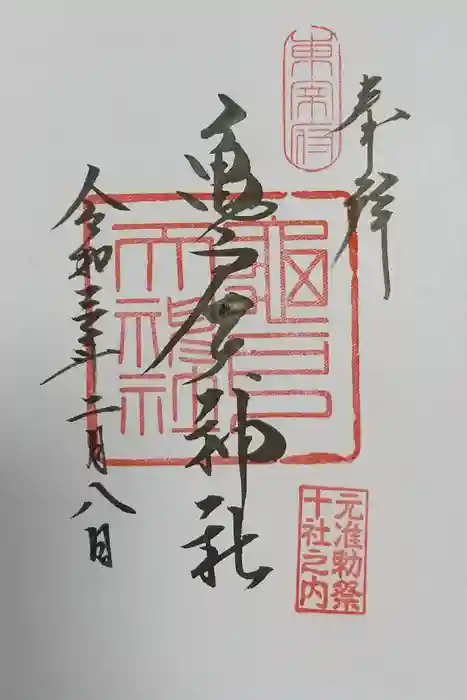 奉拝
東宰府
亀戸天神社
令和三年二月八日
亀戸
天神社
元准勅祭
十社之内